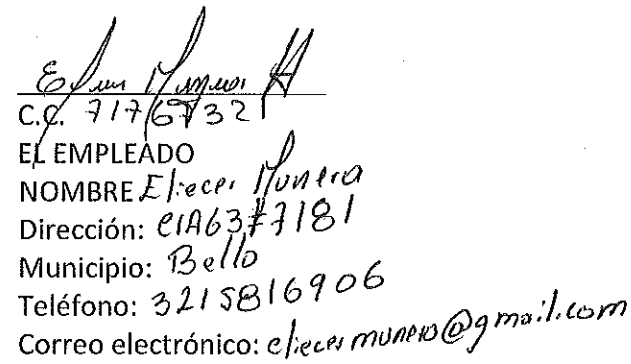 C.C. 71767321
EL EMPLEADO
NOMBRE Eliecer Munera
Dirección: Cl A63#7181
Municipio: Bello
Teléfono: 3215816906
Correo electrónico: eliecermunera@gmail.com